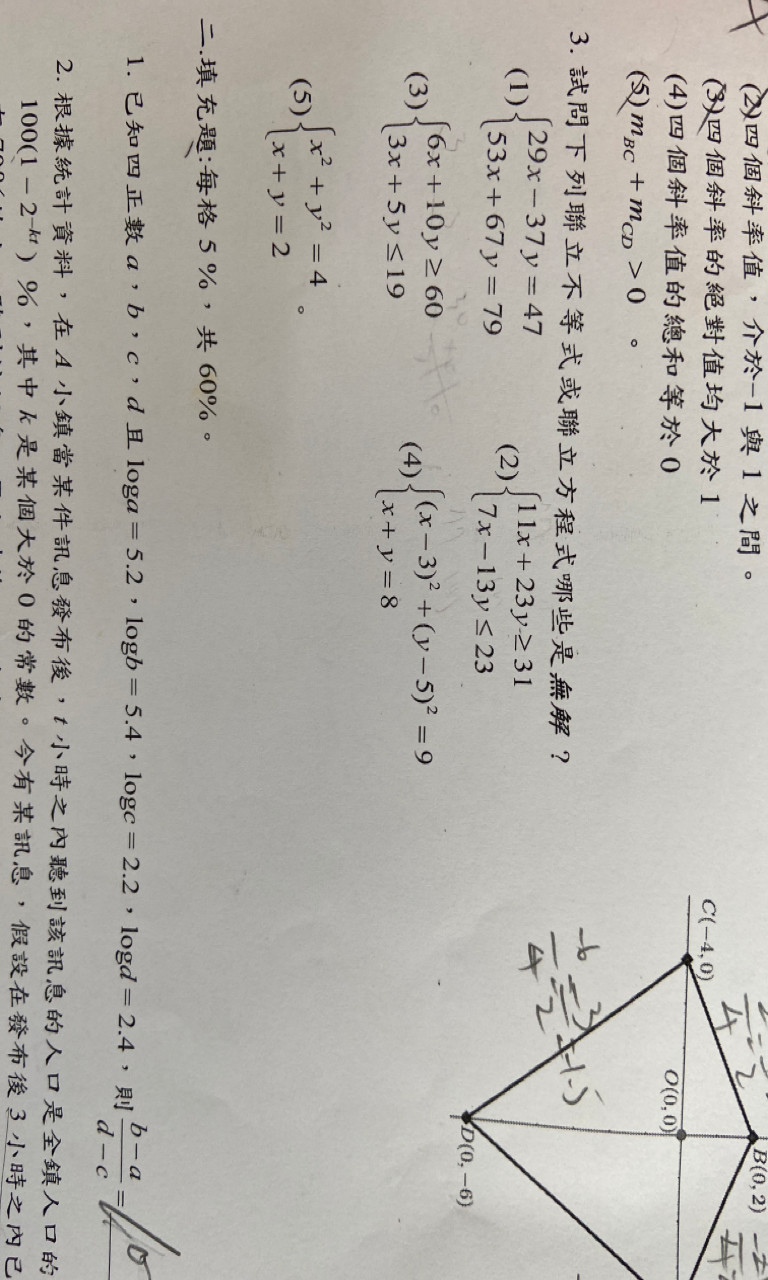 (2)四個斜率值，介於−1 與 1 之間。
(3)四個斜率的絕對值均大於 1
(4)四個斜率值的總和等於 0
(5) m_BC + m_CD > 0 。
C(−4,0)
O(0,0)
B(0,2)
D(0,−6)
3. 試問下列聯立不等式或聯立方程式哪些是無解？
(1) { 29x − 37y = 47
53x + 67y = 79
(2) { 11x + 23y ≥ 31
7x − 13y ≤ 23
(3) { 6x + 10y ≥ 60
3x + 5y ≤ 19
(4) { (x − 3)² + (y − 5)² = 9
x + y = 8
(5) { x² + y² = 4
x + y = 2 。
二.填充題:每格 5 %，共 60%。
1. 已知四正數 a，b，c，d 且 loga = 5.2，logb = 5.4，logc = 2.2，logd = 2.4，則 (b − a)/(d − c) =
2. 根據統計資料，在 A 小鎮當某件訊息發布後，t 小時之內聽到該訊息的人口是全鎮人口的
100(1 − 2^(−kt)) %，其中 k 是某個大於 0 的常數。今有某訊息，假設在發布後 3 小時之內已